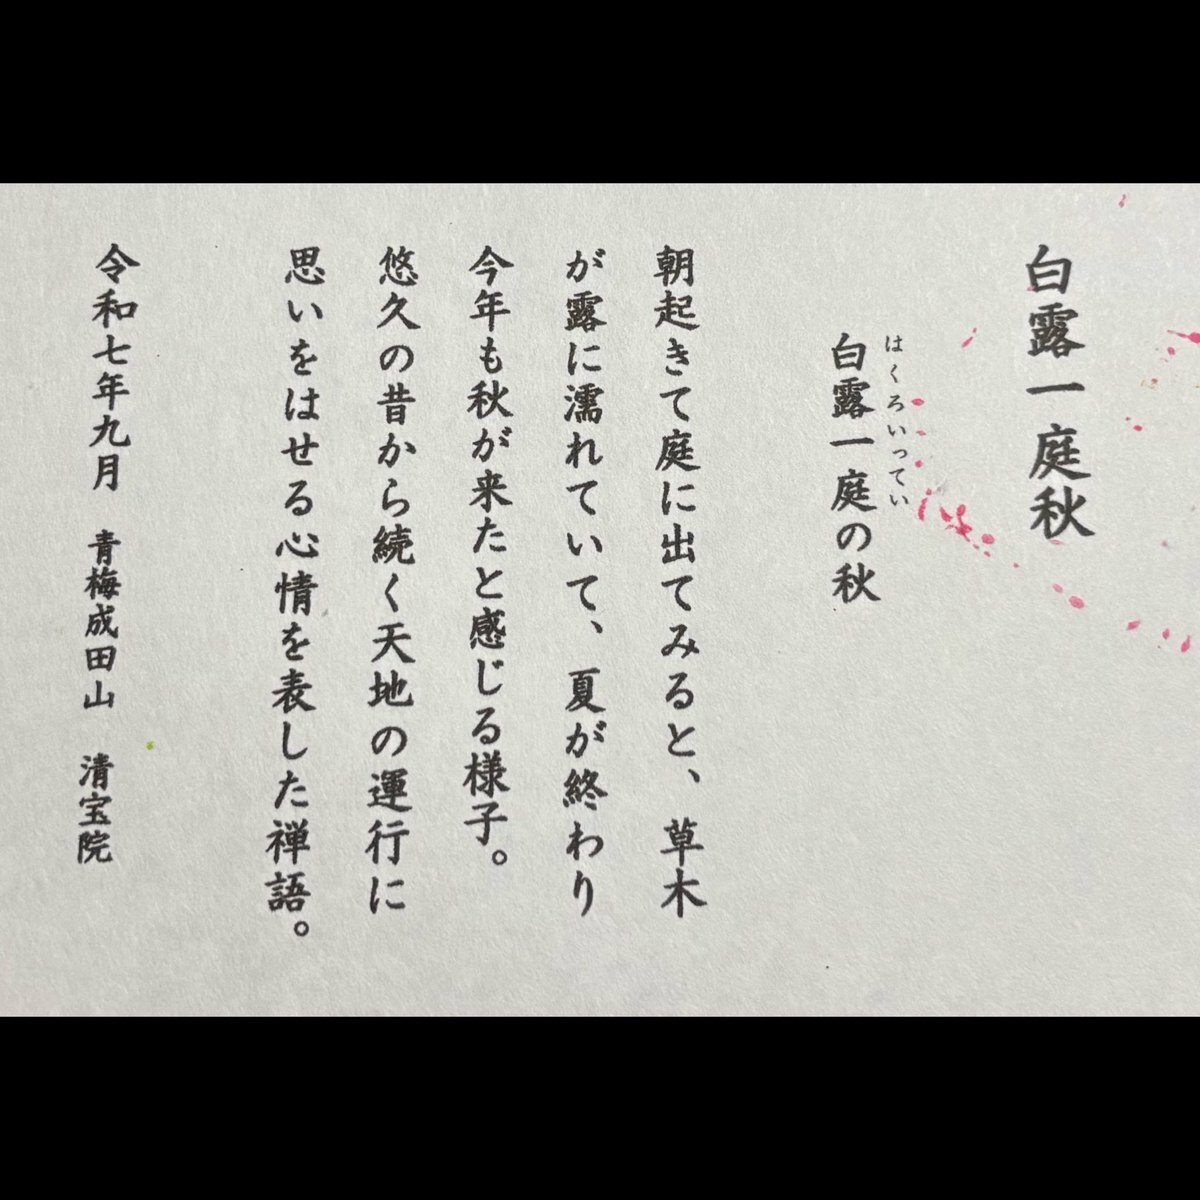 白露一庭秋
はくろいってい
白露一庭の秋
朝起きて庭に出てみると、草木
が露に濡れていて、夏が終わり
今年も秋が来たと感じる様子。
悠久の昔から続く天地の運行に
思いをはせる心情を表した禅語。
令和七年九月　青梅成田山　清宝院